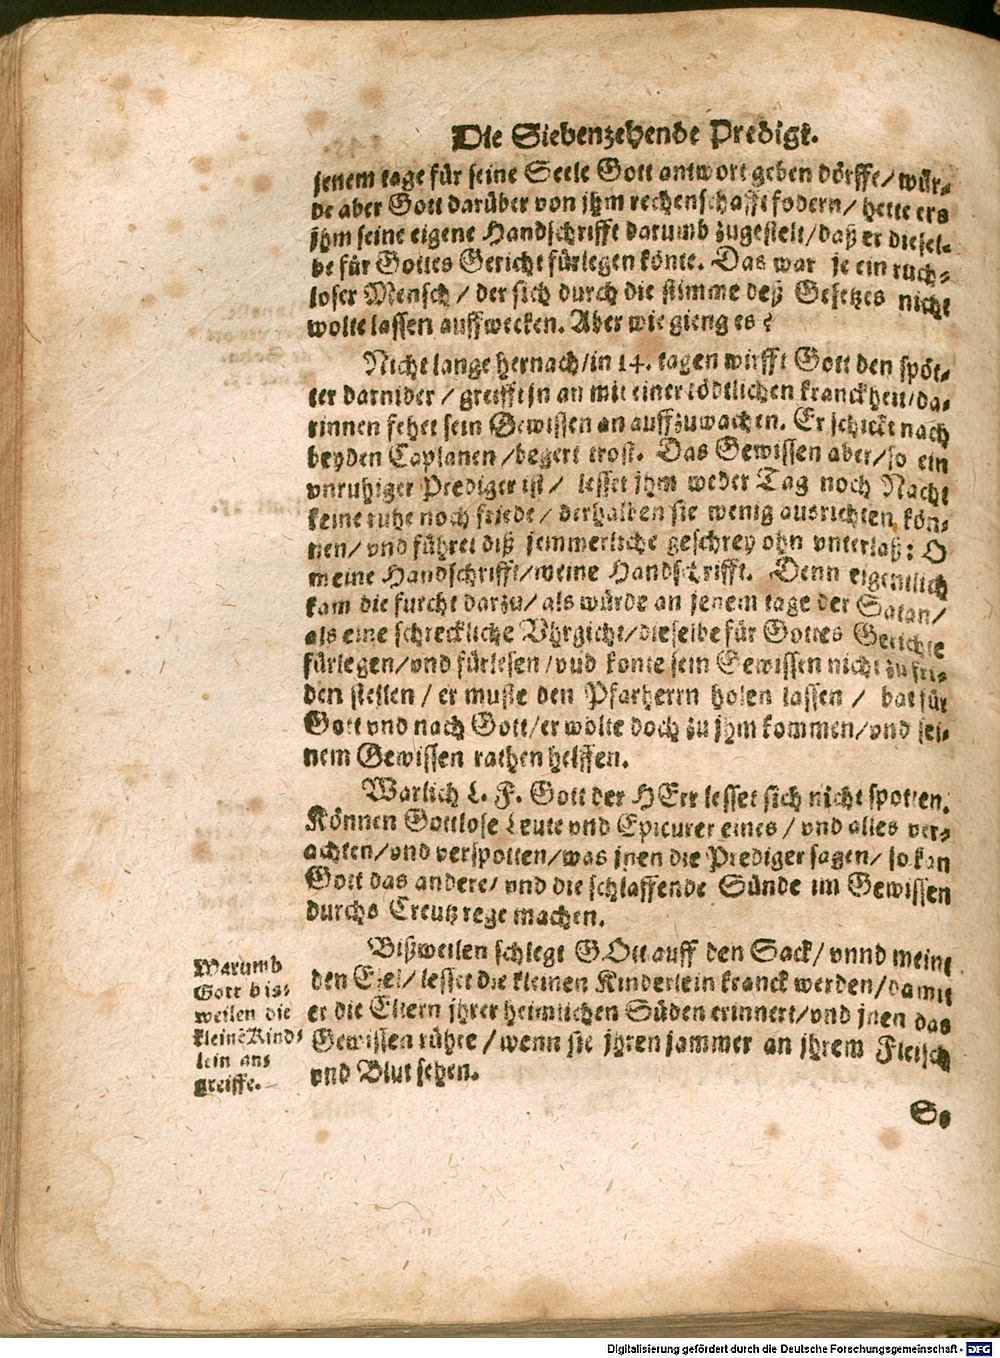 Die Siebenzehende Predigt.
jenem tage für seine Seele Gott antwort geben dörffe/ wür-
de aber Gott darüber von jhm rechenschafft fodern/ hette ers
jhm seine eigene Handschrifft darumb zugestelt/ daß er diesel-
be für Gottes Gericht fürlegen könte. Das war je ein ruch-
loser Mensch/ der sich durch die stimme deß Gesetzes nicht
wolte lassen auffwecken. Aber wie gieng es?
Nicht lange hernach/ in 14. tagen wirfft Gott den spöt-
ter darnider/ greifft jn an mit einer tödtlichen kranckheit/ da-
rinnen fehet sein Gewissen an auffzuwachen. Er schickt nach
beyden Caplanen/ begert trost. Das Gewissen aber/ so ein
vnruhiger Prediger ist/ lesset jhm weder Tag noch Nacht
keine ruhe noch friede/ derhalben sie wenig ausrichten kön-
nen/ vnd führet diß jemmerliche geschrey ohn vnterlaß: O
meine Handschrifft/ meine Handschrifft. Denn eigentlich
kam die furcht darzu/ als würde an jenem tage der Satan/
als eine schreckliche Vhrgicht/ dieselbe für Gottes Gerichte
fürlegen/ vnd fürlesen/ vnd konte sein Gewissen nicht zu fri-
den stellen/ er muste den Pfarherrn holen lassen/ bat für
Gott vnd nach Gott/ er wolte doch zu jhm kommen/ vnd sei-
nem Gewissen rathen helffen.
Warlich L. F. Gott der HErr lesset sich nicht spotten.
Können Gottlose Leute vnd Epicurer eines/ vnd alles ver-
achten/ vnd verspotten/ was jnen die Prediger sagen/ so kan
Gott das andere/ vnd die schlaffende Sünde im Gewissen
durchs Creutz rege machen.
Bißweilen schlegt GOtt auff den Sack/ vnnd meint
den Esel/ lesset die kleinen Kinderlein kranck werden/ damit
er die Eltern jhrer heimlichen Süden erinnert/ vnd jnen das
Gewissen rühre/ wenn sie jhren jammer an jhrem Fleisch
vnd Blut sehen.
Warumb
Gott bis-
weilen die
kleinē Kind-
lein an-
greiffe.
So
Digitalisierung gefördert durch die Deutsche Forschungsgemeinschaft - DFG